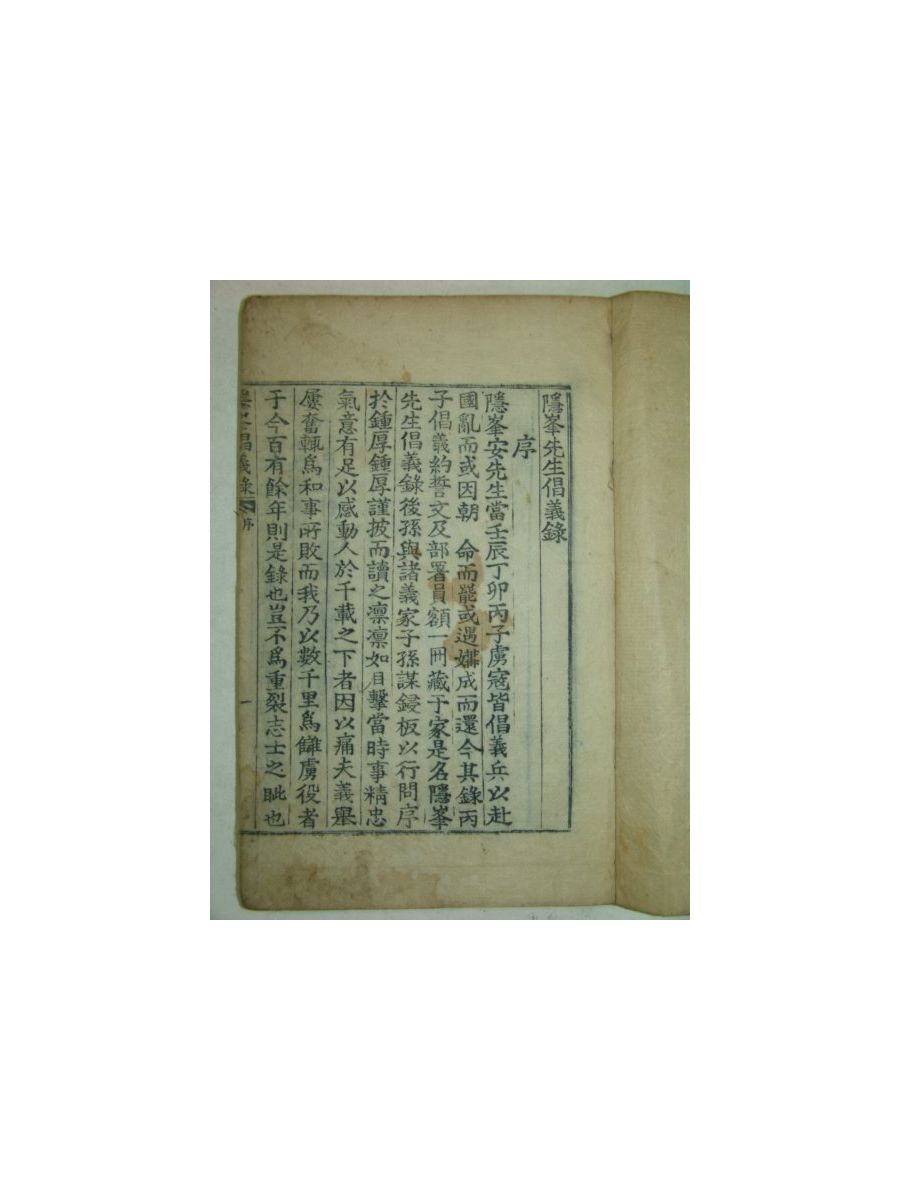 隱峯先生倡義錄
序
隱峯安先生當壬辰丁卯丙子虜寇皆倡義兵以赴
國亂而或因朝 命而罷或遇媾成而還今其錄丙
子倡義約誓文及部署員額一冊藏于家是名隱峯
先生倡義錄後孫與諸義家子孫謀鋟板以行問序
於鍾厚鍾厚謹披而讀之凛凛如目擊當時事精忠
氣意有足以感動人於千載之下者因以痛夫義舉
屢奮輒爲和事所敗而我乃以數千里爲讎虜役者
于今百有餘年則是錄也豈不爲重裂志士之眦也
峯倡義錄 序 一